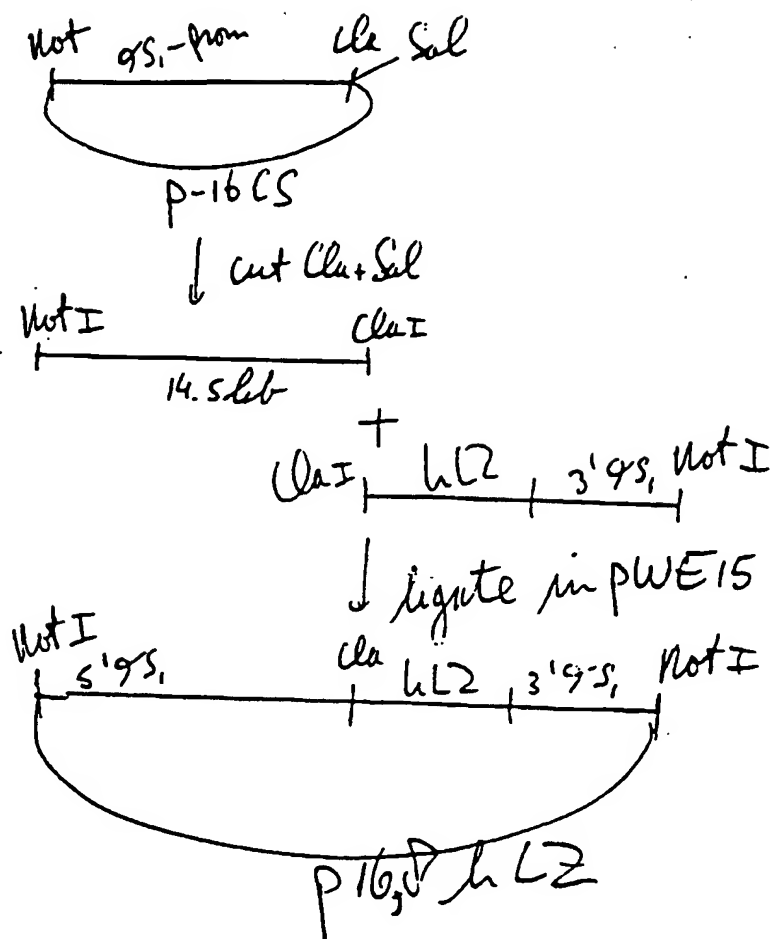 Not αS₁-prom Cla Sal
p-16CS
↓ cut Cla+Sal
Not I Cla I
14.5 kb
+
Cla I hLZ 3'αS₁ Not I
↓ ligate in pWE15
Not I 5'αS₁ Cla hLZ 3'αS₁ Not I
p16,8 hLZ